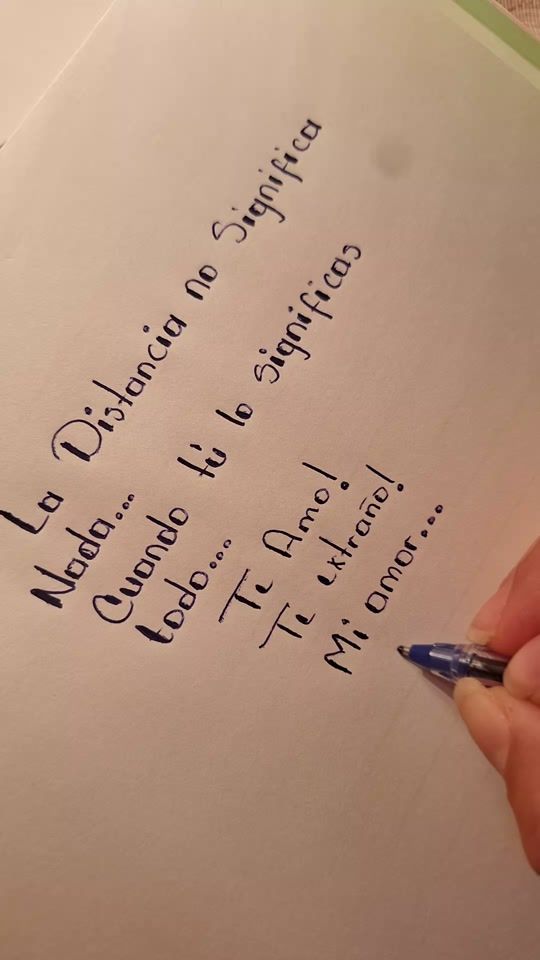 La Distancia no Significa
Nada...
Cuando tú lo significas
todo...
Te Amo!
Te extraño!
Mi amor...